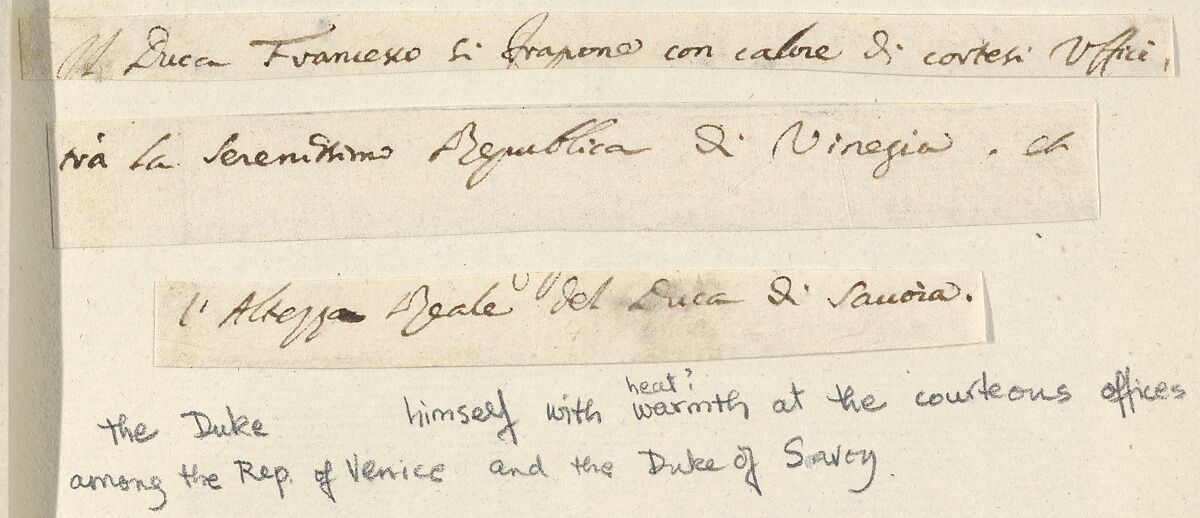 Il Duca Francesco si frapone con calore di cortesi Uffici,
trà la Serenissima Republica di Vinegia. et
l'Altezza Reale del Duca di Sauoia.
heat?
the Duke himself with warmth at the courteous offices
among the Rep. of Venice and the Duke of Savoy.